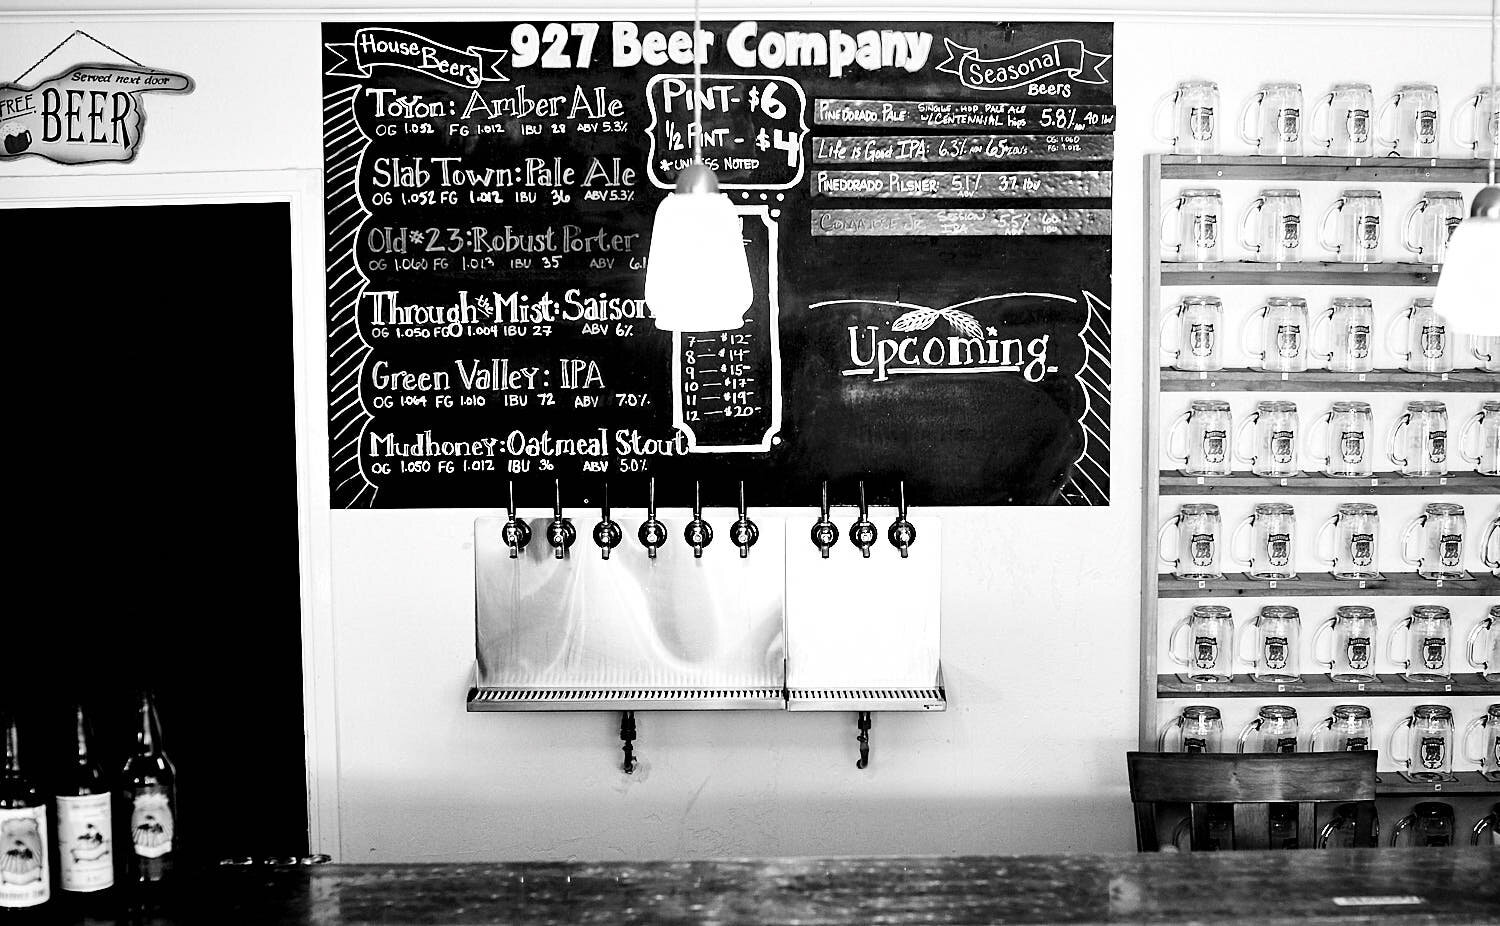 Served next door
FREE
BEER
House Beers
927 Beer Company
Seasonal Beers
Toyon: Amber Ale
OG 1.052 FG 1.012 IBU 28 ABV 5.3%
Slab Town: Pale Ale
OG 1.052 FG 1.012 IBU 36 ABV 5.3%
Old #23: Robust Porter
OG 1.060 FG 1.013 IBU 35 ABV
Through the Mist: Saison
OG 1.050 FG 1.004 IBU 27 ABV 6%
Green Valley: IPA
OG 1.064 FG 1.010 IBU 72 ABV 7.0%
Mudhoney: Oatmeal Stout
OG 1.050 FG 1.012 IBU 36 ABV 5.0%
PINT - $6
1/2 PINT - $4
NOTED
7 — $12-
8 — $14-
9 — $15-
10 — $17-
11 — $19-
12 — $20-
PINEDORADO PALE: SINGLE-HOP PALE ALE w/CENTENNIAL hops 5.8% ABV 40 IBU
Life is Good IPA: 6.3% ABV 65 IBU's OG: 1.060 FG: 1.012
PINEDORADO PILSNER: 5.1% ABV 37 IBU
SESSION IPA 5.5% ABV
Upcoming